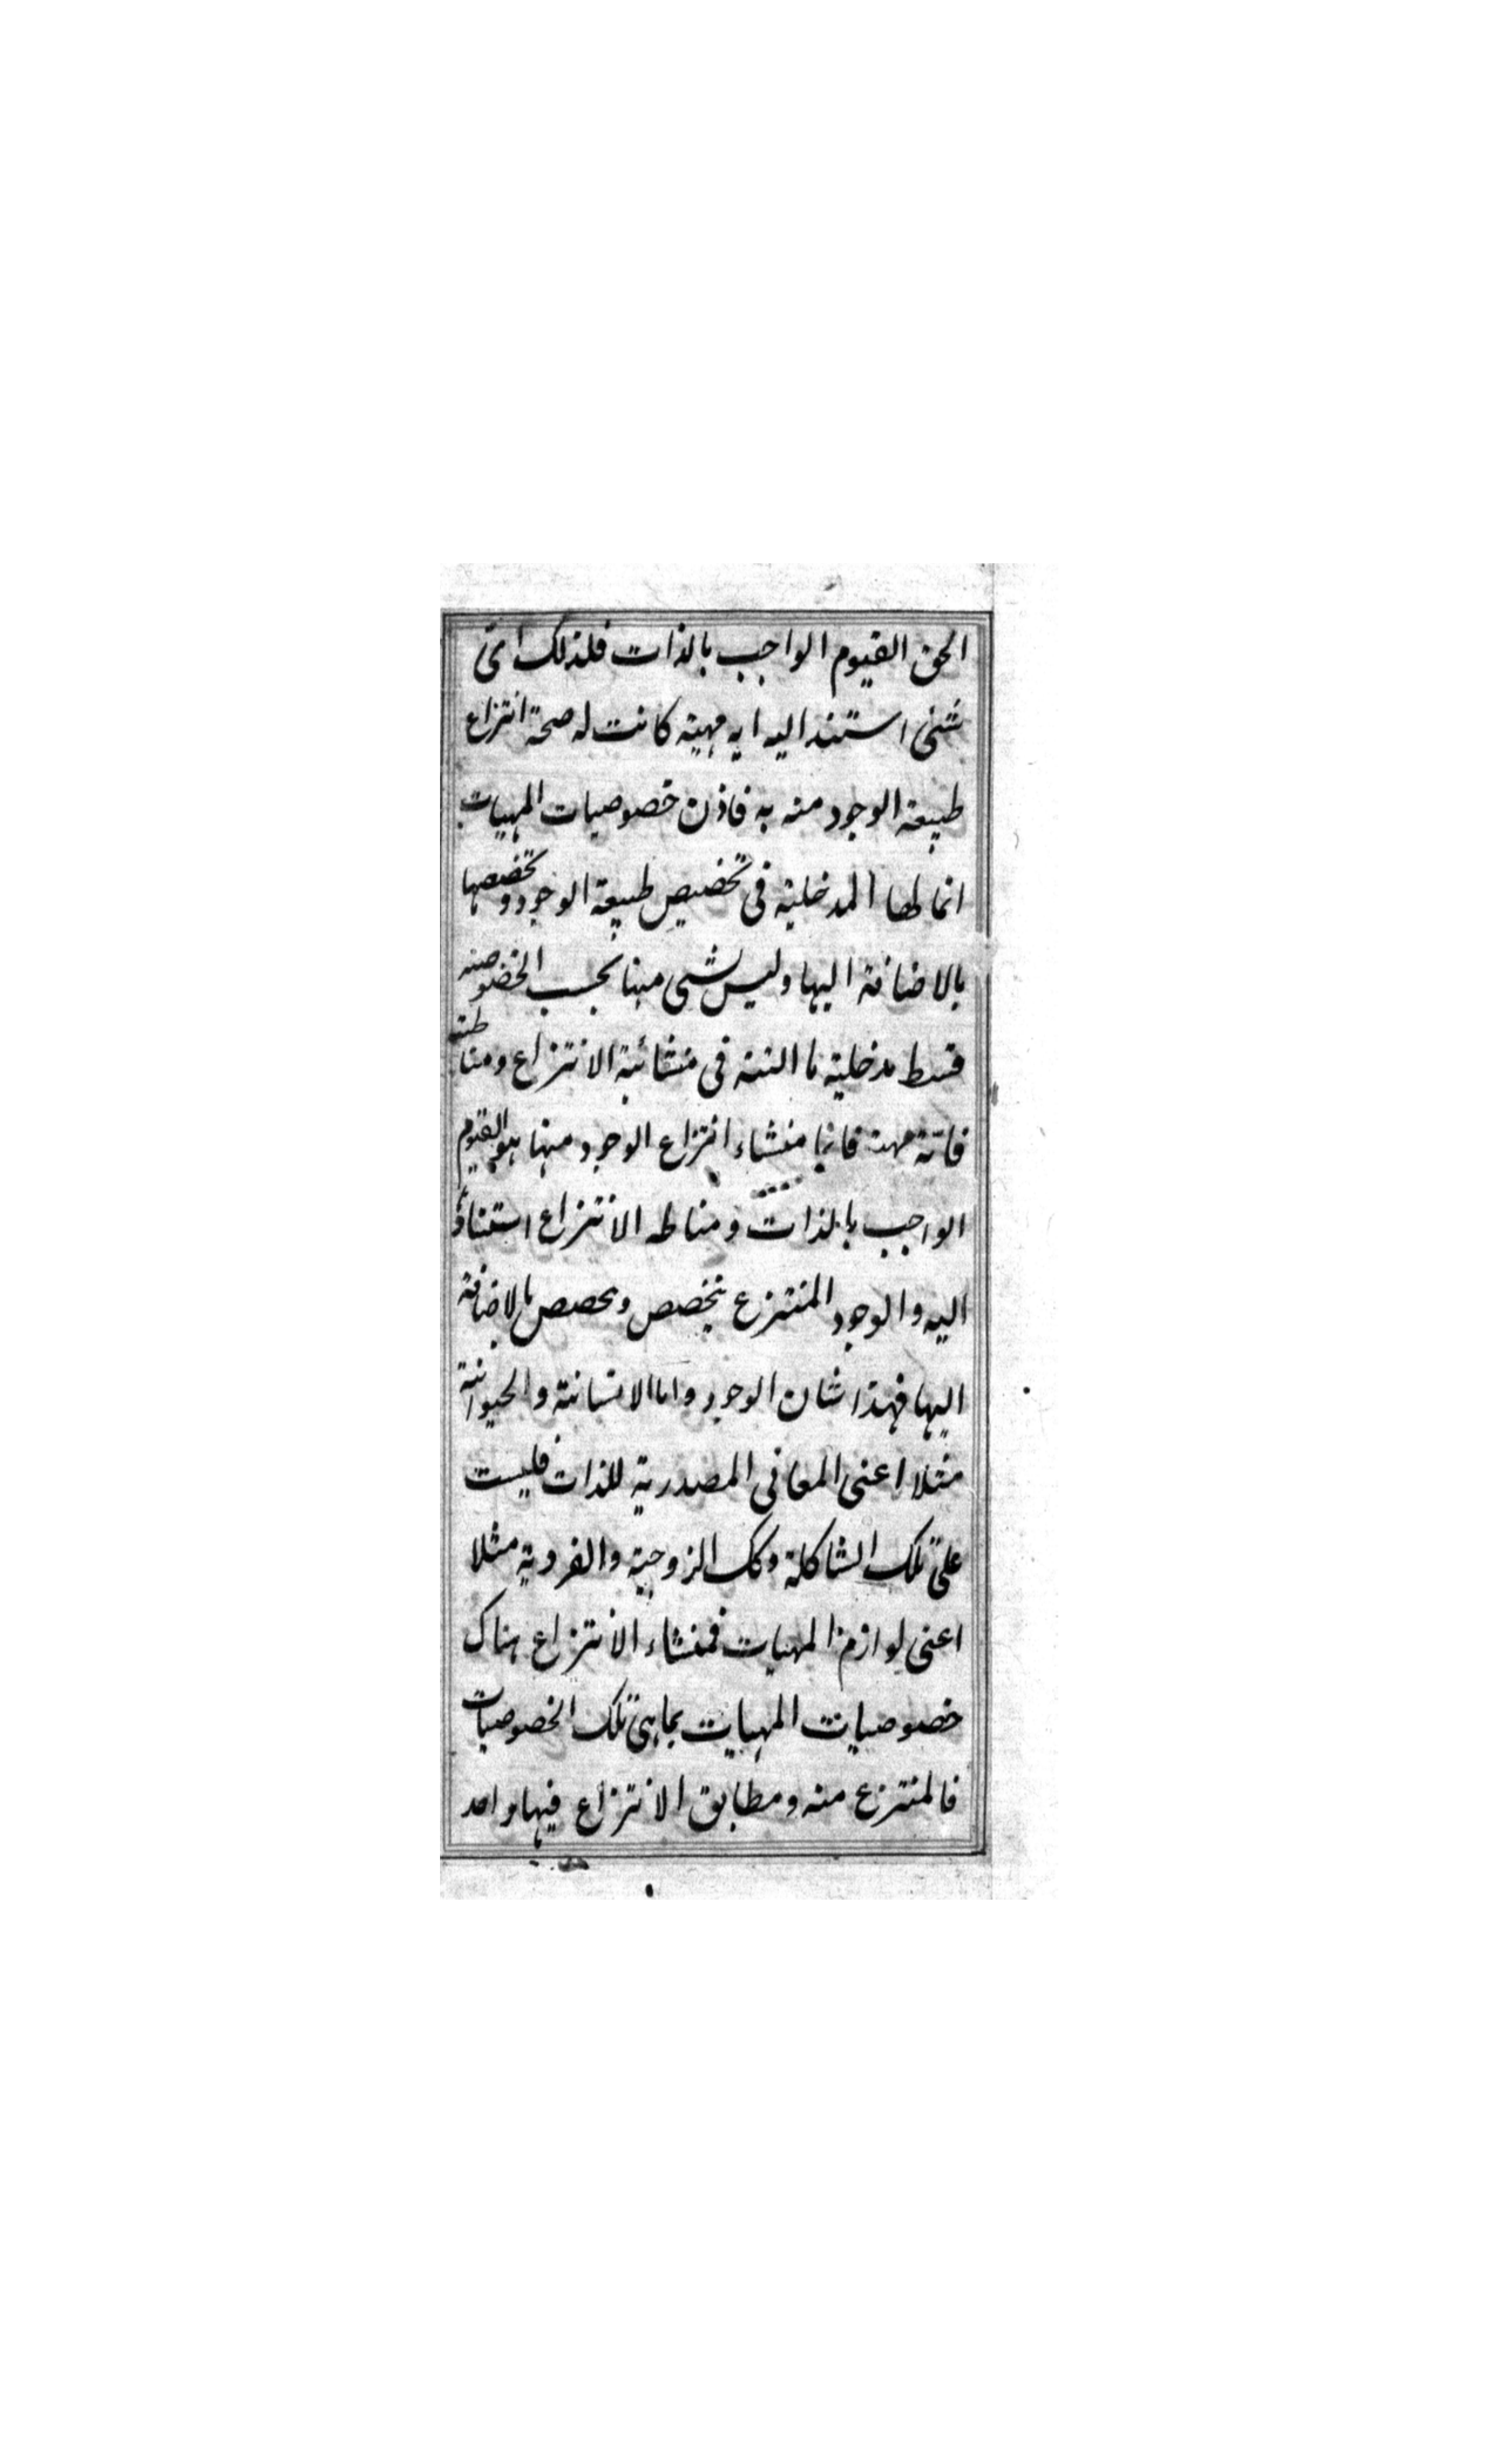 الحق القيوم الواجب بالذات فلذلك اىّ
شئى استند اليه ايه مهية كانت له صحة انتزاع
طبيعة الوجود منه به فاذن خصوصيات المهيات
انما لها المدخلية فى تخصيص طبيعة الوجود وتخصصها
بالاضافة اليها وليس لشئ منها بحسب الخصوصية
قسط مدخلية ما البتة فى منشائية الانتزاع ومناطته
فاية مهية فانما منشاء انتزاع الوجود منها هو القيوم
الواجب بالذات ومناطه الانتزاع استناد
اليه والوجود المنتزع يتخصص وتحصص بالاضافة
اليها فهذا شان الوجود واما الانسانية والحيوانية
مثلا اعنى المعانى المصدرية للذات فليست
على تلك الشاكلة وكك الزوجية والفردية مثلا
اعنى لوازم المهيات فمنشاء الانتزاع هناك
خصوصيات المهيات بماهى تلك الخصوصيات
فالمنتزع منه ومطابق الانتزاع فيها واحد